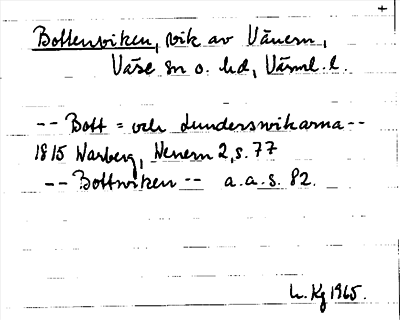 +
Bottenviken, vik av Vänern,
Väse sn o. hd, Värml. l.
-- Bott = och Lundersvikarna --
1815 Warberg, Wenern 2, s. 77
-- Bottwiken -- a.a.s. 82.
L. Kg 1965.